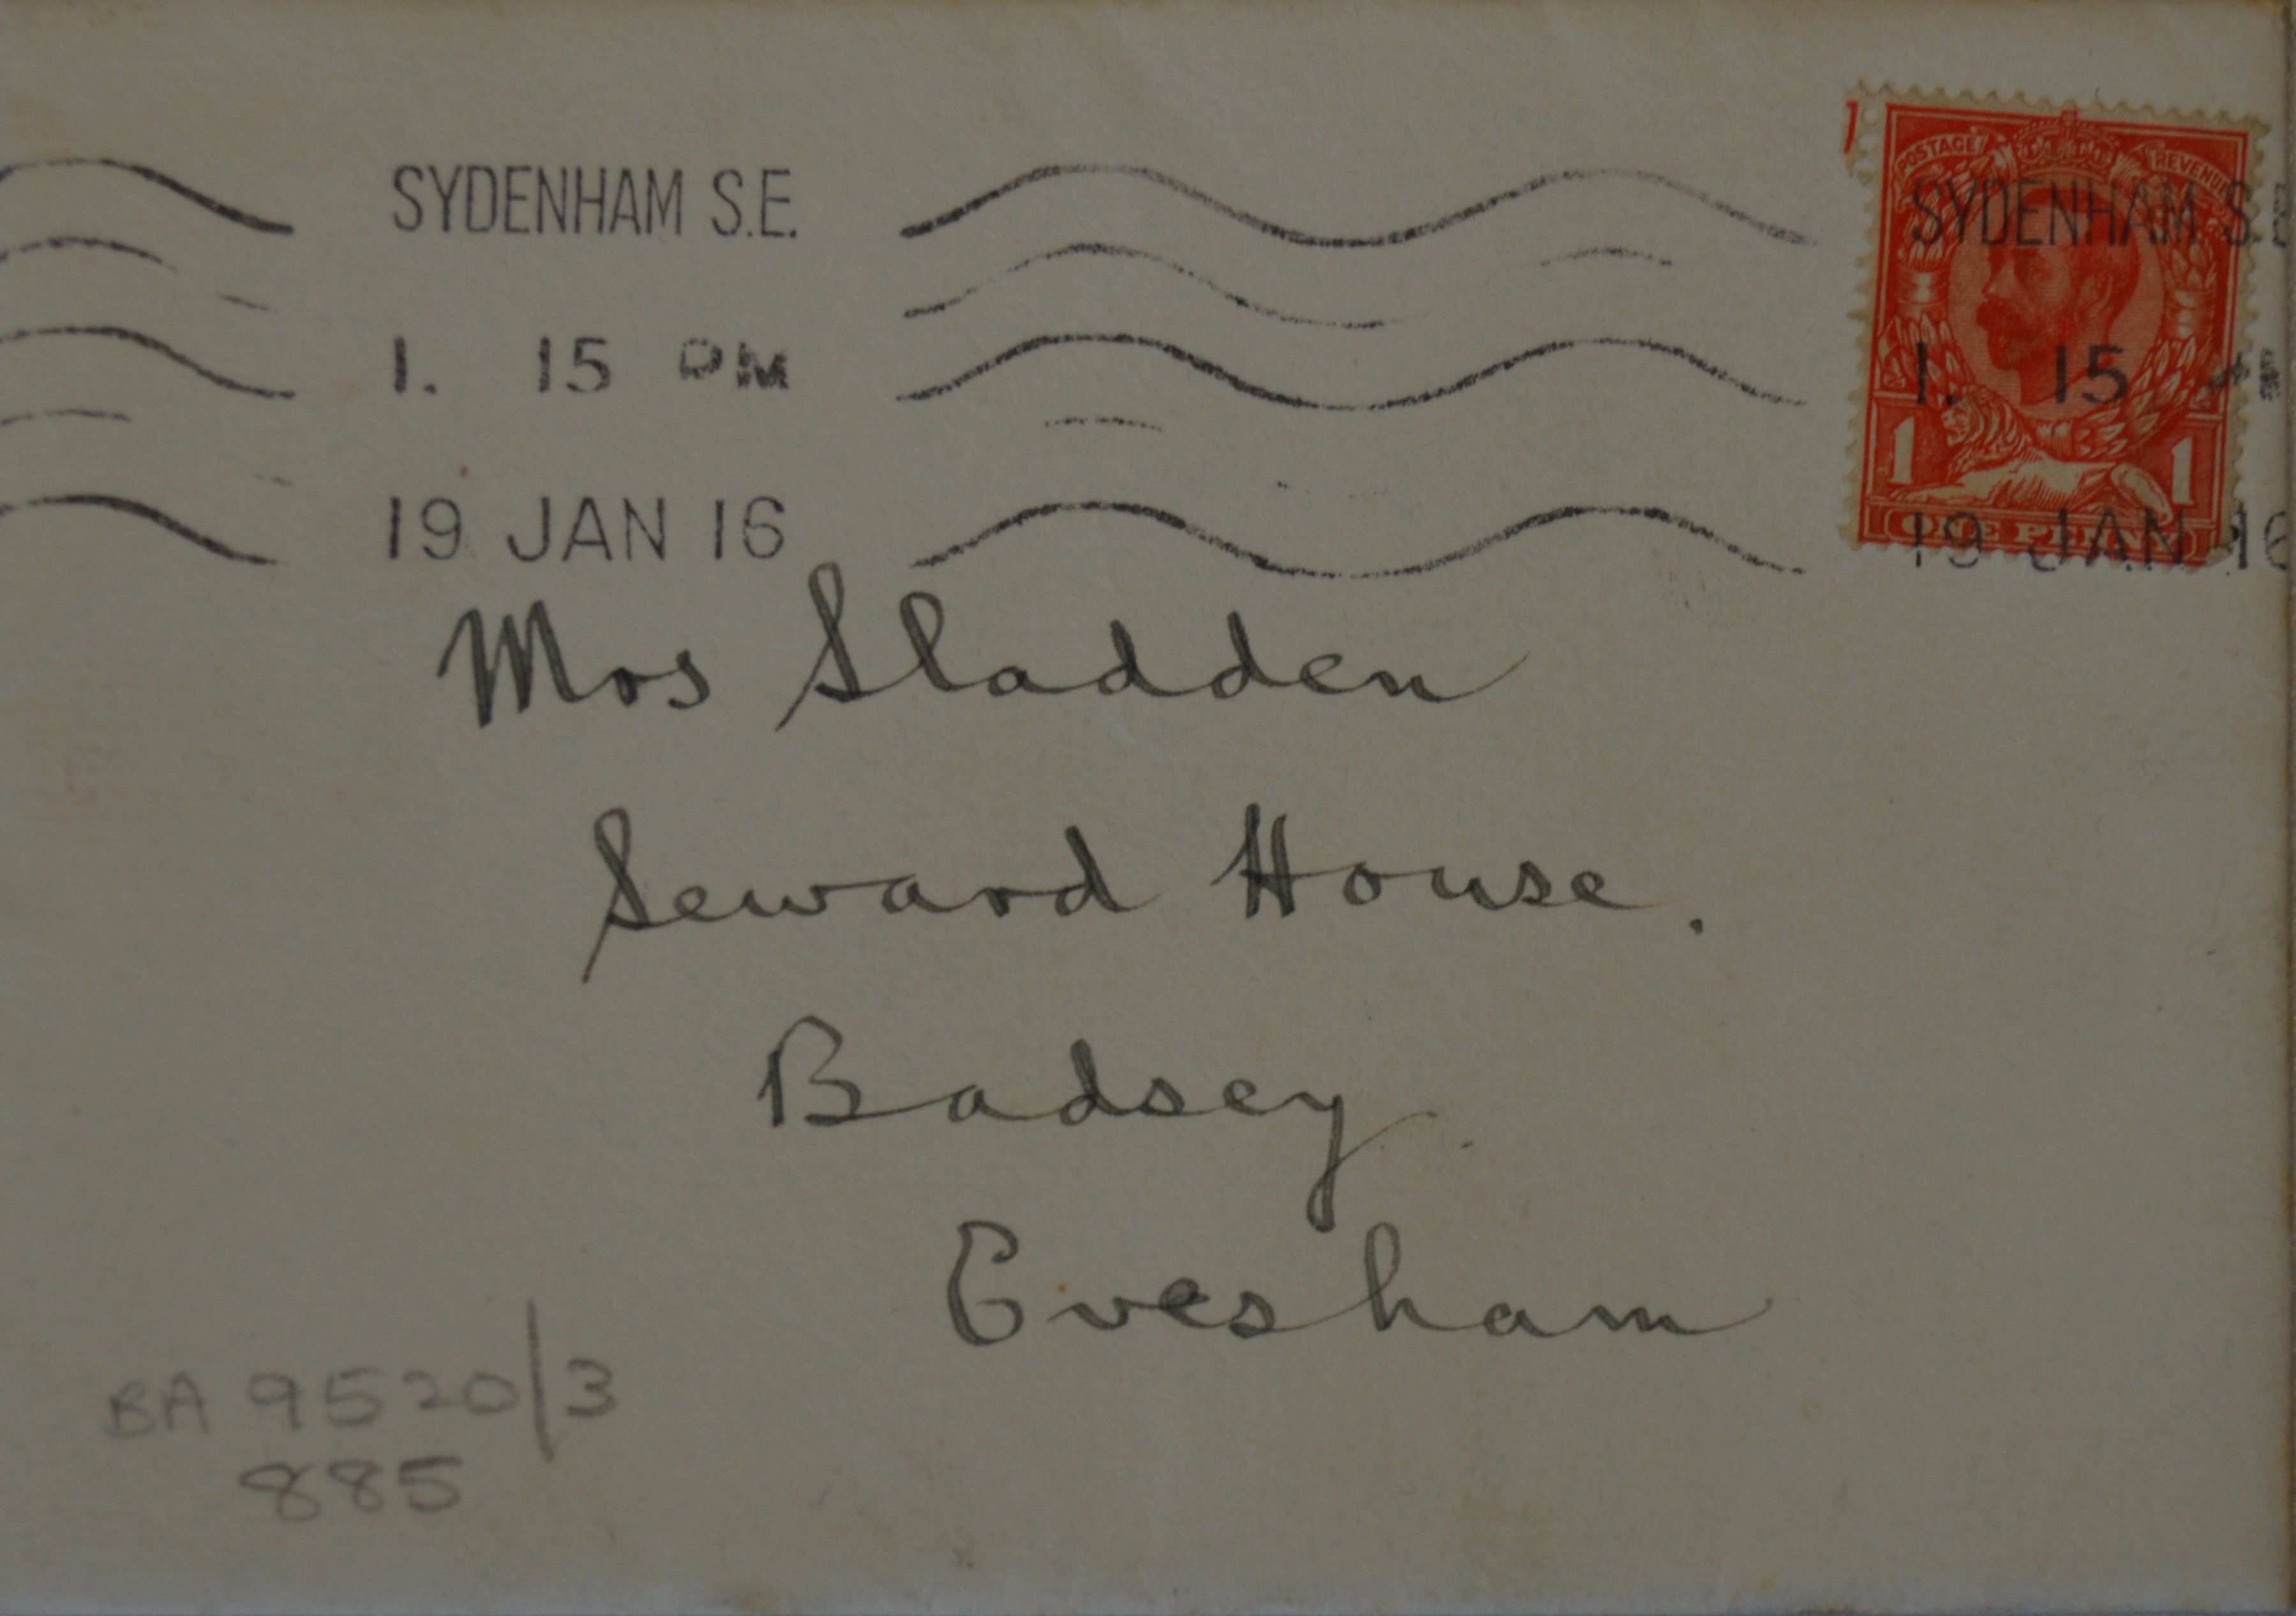 SYDENHAM S.E.
1. 15 PM
19 JAN 16
POSTAGE REVENUE
SYDENHAM S.E
1. 15
1 1
ONE PENNY
19 JAN 16
Mrs Sladden
Seward House.
Badsey
Evesham
BA 9520/3
885